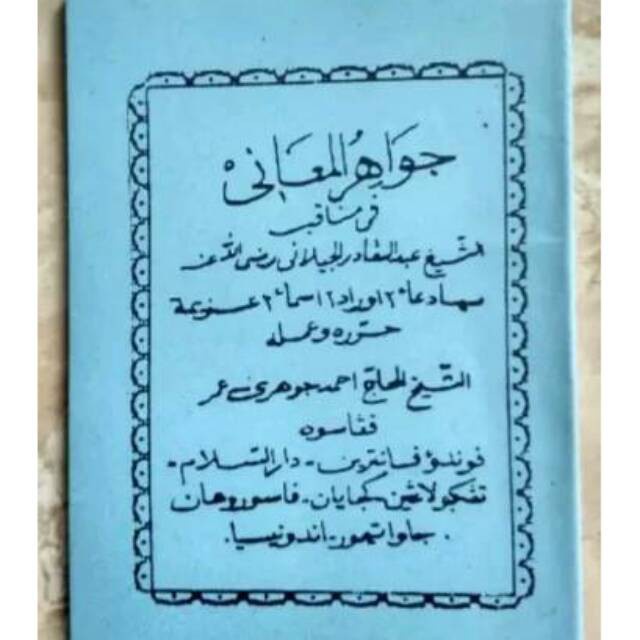 جَوَاهِرُ المَعَانِى
فى مناقب
الشّيخ عبد القادر الجيلانى رضى الله عنه
سهادعا٢ اوراد٢ اسما٢ عزيمة
حرّره وعمله
الشّيخ الحاج احمد جوهرى عمر
فڠاسوه
فوندؤ فسانترين - دار السّلام -
تڠكولاڠين كجايان - فاسوروهان
. جاوا تيمور - اندونيسيا .